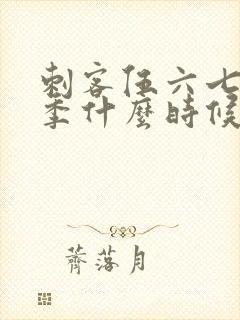 刺客伍六七
季什麼時候
薺落月